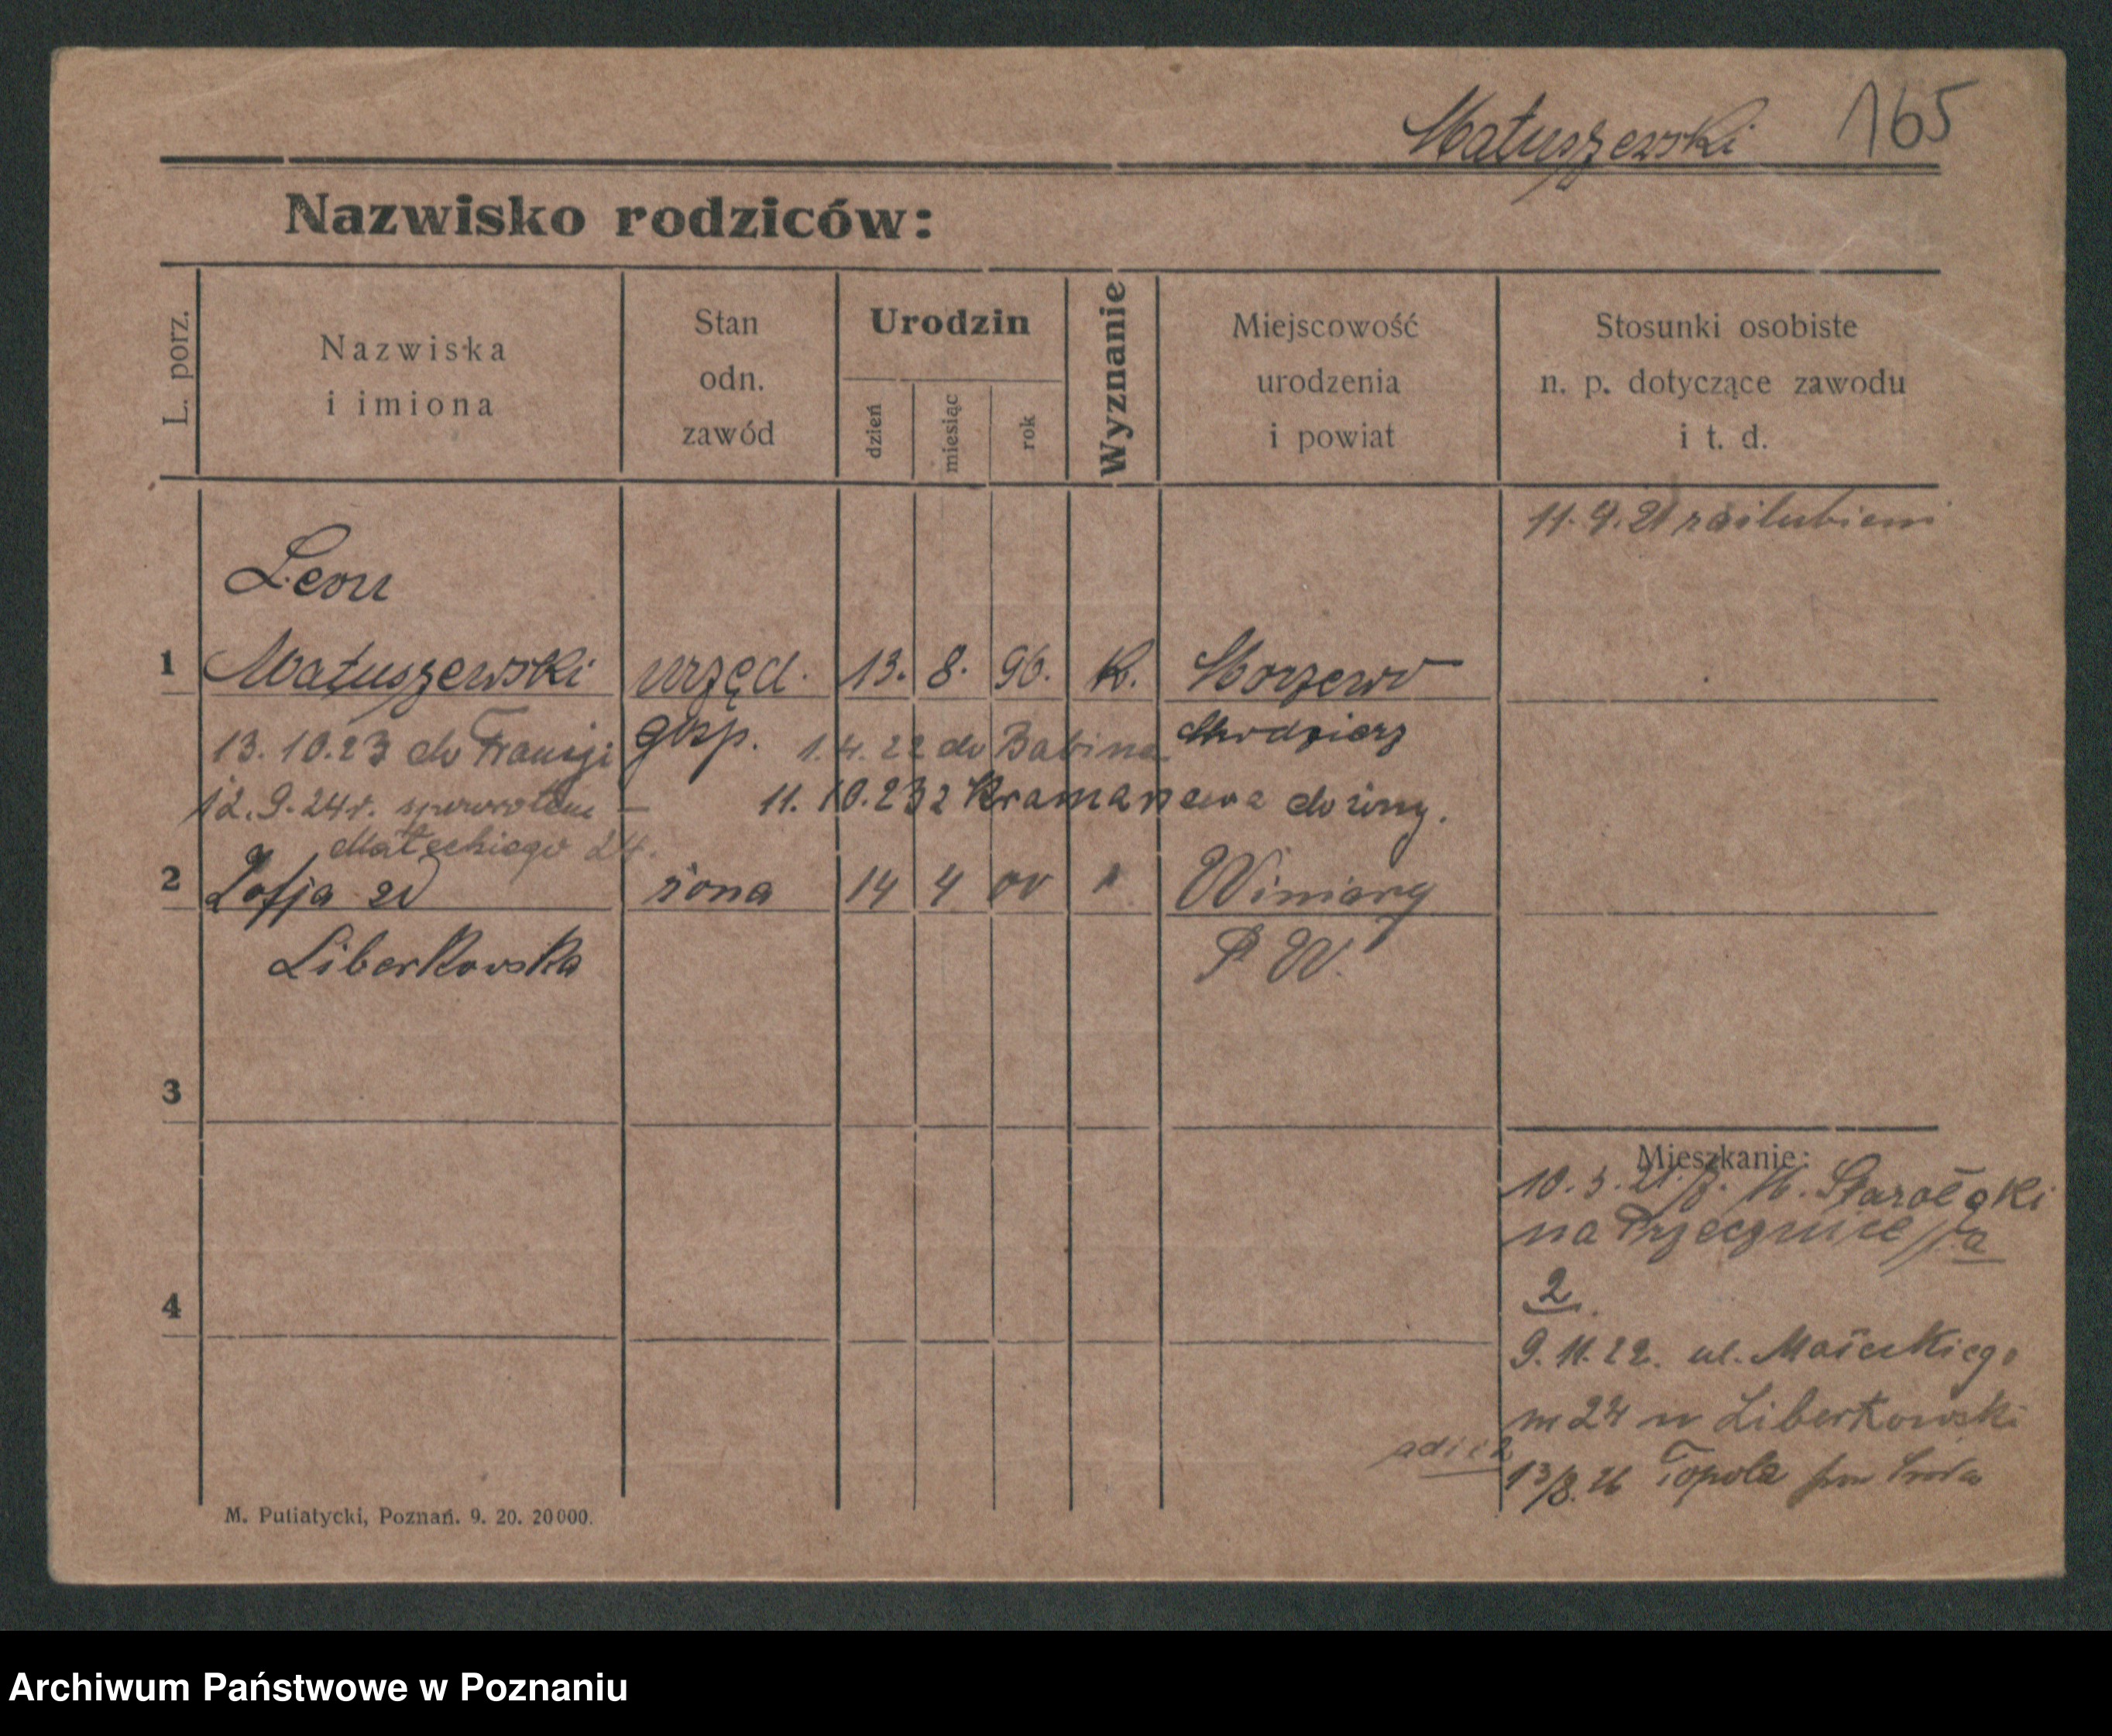 Matuszewski 165
Nazwisko rodziców:
L. porz.
Nazwiska
i imiona
Stan
odn.
zawód
Urodzin
dzień
miesiąc
rok
Wyznanie
Miejscowość
urodzenia
i powiat
Stosunki osobiste
n. p. dotyczące zawodu
i t. d.
11. 9. 21 zaślubieni
Leon
1 Matuszewski urzęd. 13. 8. 96. K. Morzewo
gosp. Chodzież
13. 10. 23 do Francji 1. 4. 22 do Babina
12. 9. 24r. spowrotem — 11. 10. 23 z Kramarzewa do żony.
Małeckiego 24.
2 Zofja żona 14 4 00 " Winiary
Liberkowska P. W.
3
4
Mieszkanie:
10. 3. 21 Starołęki
na Trzecznice
2.
9. 11. 22. ul. Małeckiego
m 24 u Liberkowski
13/8. 26 Topola pow Środa
M. Putiatycki, Poznań. 9. 20. 20000.
Archiwum Państwowe w Poznaniu